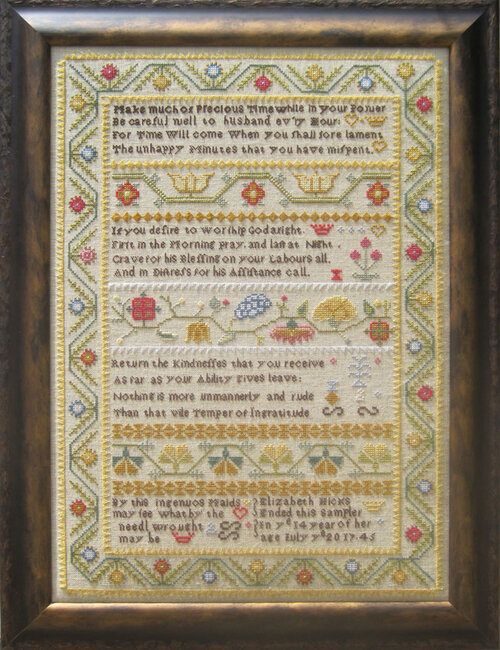 Make much of Precious Time while in your Power
Be careful well to husband ev'ry Hour
For Time Will come When you shall sore lament
The unhappy Minutes that you have mispent.
If you desire to Worship God aright
First in the Morning pray. and last at Night.
Crave for his Blessing on your Labours all,
And in Distress for his Assistance call.
Return the Kindnesses that you receive
As far as your Ability Gives leave:
Nothing is more unmannerly and rude
Than that vile Temper of Ingratitude
By this ingenuos Maids
may see What by the
needl wrought
may be
Elizabeth Hicks
Ended this Sampler
In ye 14 year of her
age July ye 20 1745